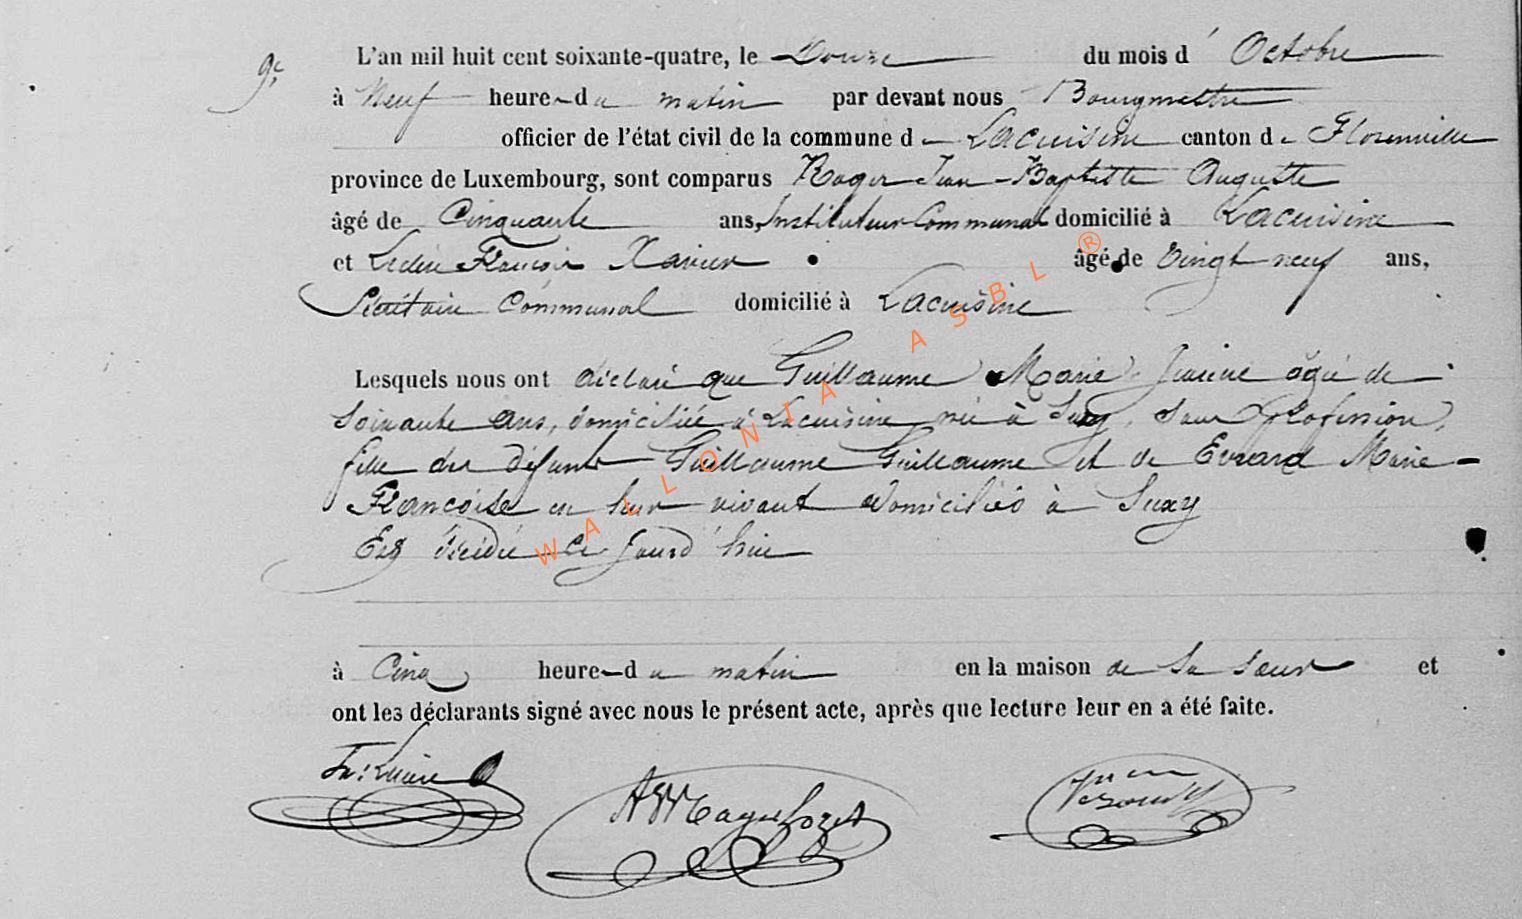 9e
L'an mil huit cent soixante-quatre, le Douze du mois d' Octobre
à Neuf heure du matin par devant nous Bourgmestre
officier de l'état civil de la commune de Lacuisine canton de Florenville
province de Luxembourg, sont comparus Roger Jean-Baptiste Auguste
âgé de Cinquante ans, Instituteur Communal domicilié à Lacuisine
et François Xavier âgé de Vingt neuf ans,
Secrétaire Communal domicilié à Lacuisine
Lesquels nous ont déclaré que Guillaume Marie Jeanne âgée de
Soixante ans, domiciliée à Lacuisine née à Suxy, Sans profession,
fille des défunts Guillaume Guillaume et de Evrard Marie
Françoise en leur vivant domiciliés à Suxy
Est décédée ce jourd'hui
à Cinq heure du matin en la maison de sa soeur et
ont les déclarants signé avec nous le présent acte, après que lecture leur en a été faite.
WALLONIA ASBL ®